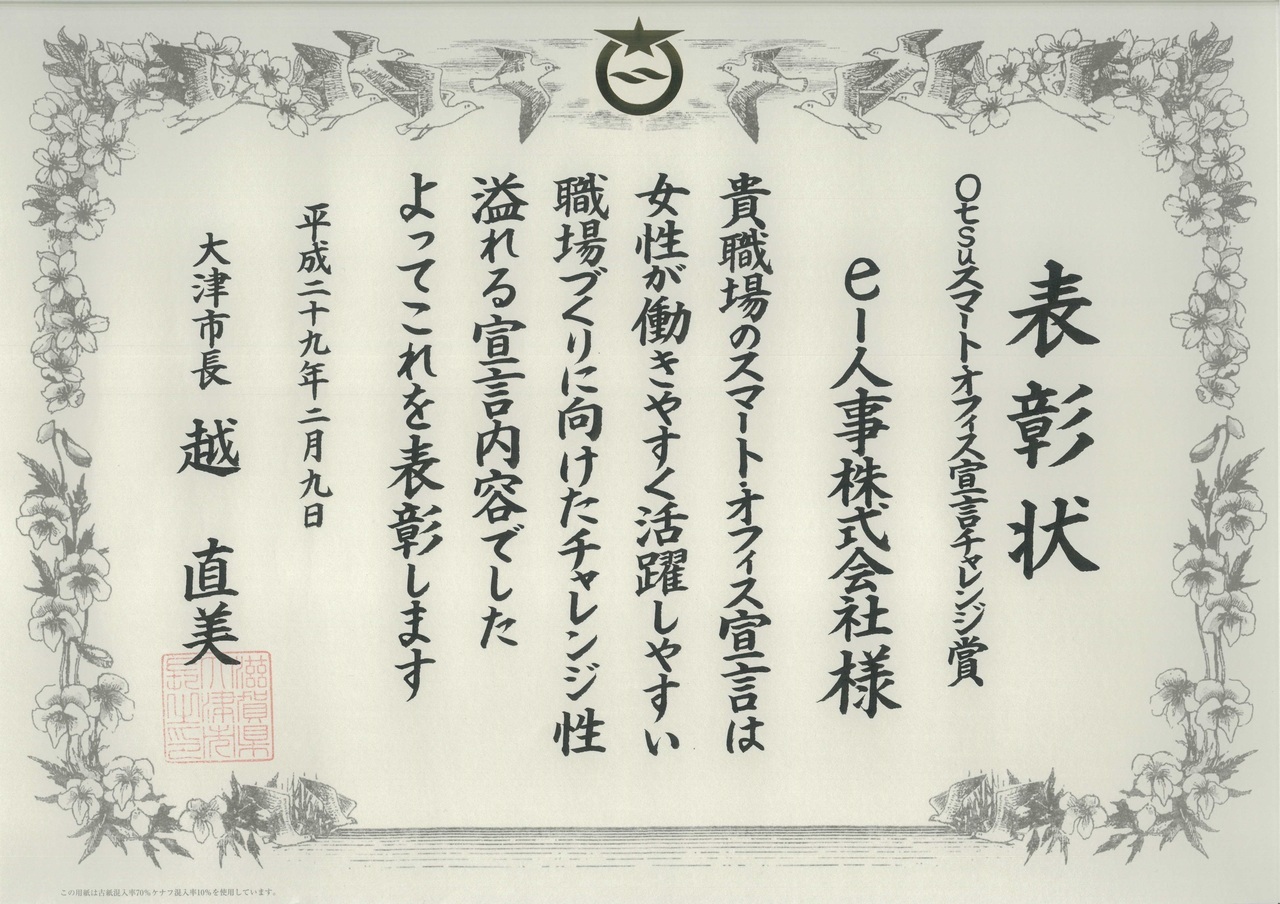 表彰状
Otsuスマート・オフィス宣言チャレンジ賞
eー人事株式会社様
貴職場のスマート・オフィス宣言は
女性が働きやすく活躍しやすい
職場づくりに向けたチャレンジ性
溢れる宣言内容でした
よってこれを表彰します
平成二十九年二月九日
大津市長 越 直美
滋賀県
大津市
長之印
この用紙は古紙混入率70%ケナフ混入率10%を使用しています。